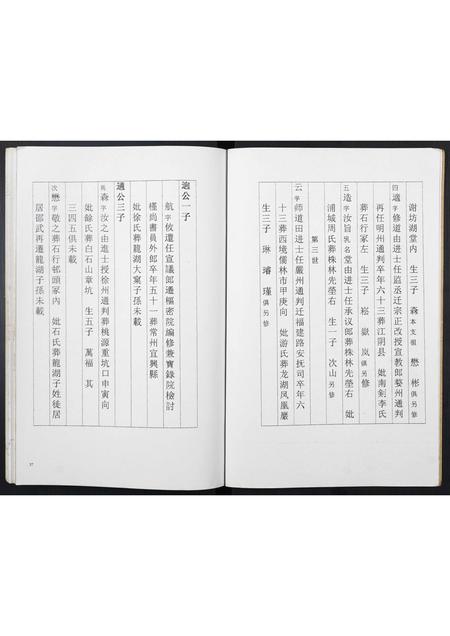 谢坊湖堂内 生三子 森本支祖 懋 彬俱另修
四適字修道由进士任监丞迁宗正改授宣教郎婺州通判
再任明州通判卒年六十三葬江阴县 妣南剑李氏
葬石行家左 生三子 崧 嶽 岚俱另修
五造字汝旨乳名堂由进士任承议郎葬株林先茔右 妣
浦城周氏葬株林先茔右 生一子 次山另修
第三世
云字师道田进士任嚴州通判迁福建路安抚司卒年六
十三葬西境儒林市甲庚向 妣游氏葬龙湖凤凰巖
生三子 琳 璿 瑾俱另修
逈公一子
航字攸遠任宣議郎遷樞密院編修兼實錄院檢討
槿尚書員外郎卒年五十一葬常州宜興縣
妣徐氏葬龍湖大窠子孫未載
遹公三子
長森字汝之由進士授徐州通判葬桃源重坑口申寅向
妣餘氏葬白石山章坑 生五子 萬福 其
三四五俱未載
次懋字敬之葬石行邨頭家內 妣石氏葬龍湖子姓徒居
居邵武再遷龍湖子孫未載
37